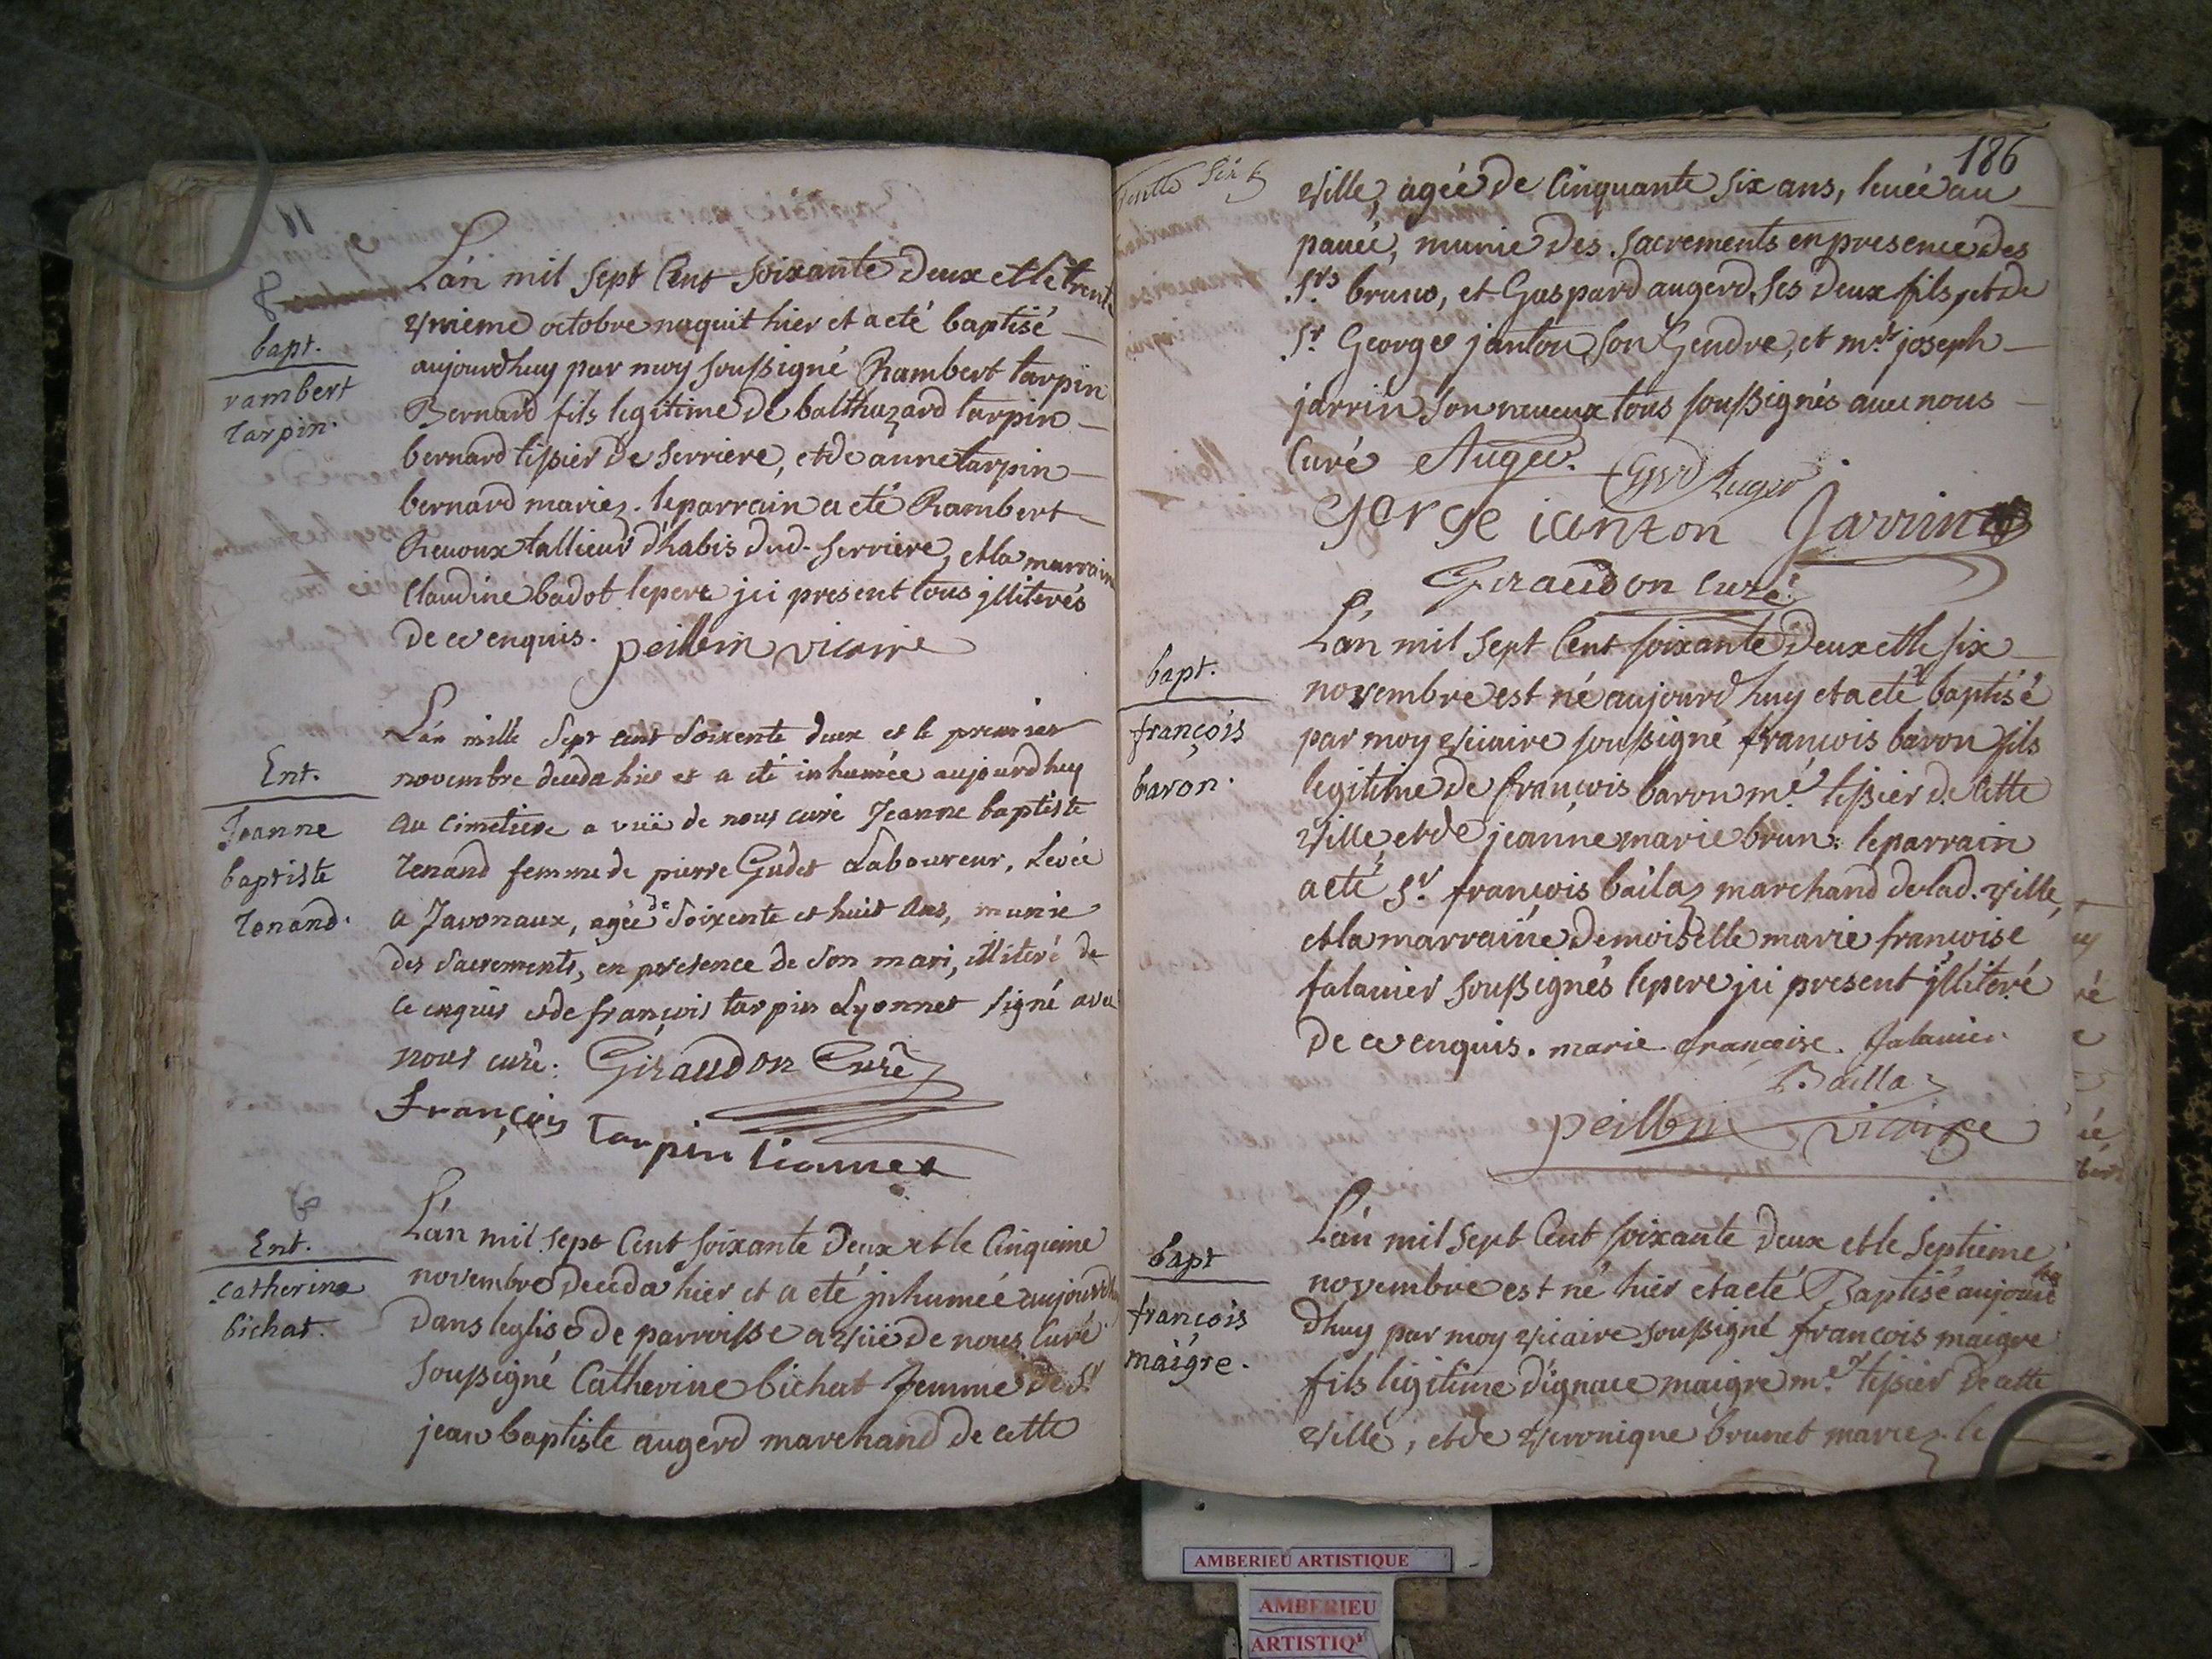 L'an mil sept Cent soixante deux et le trente
vnieme octobre naquit hier et a eté baptisé
bapt.
rambert
tarpin.
aujourdhuy par moy soussigné Rambert tarpin
Bernard fils legitime de balthazard tarpin
bernard tissier de serriere, et de anne tarpin
bernard mariez. le parrain a eté Rambert
Reuoux tallieur d'habis dud. serriere, et la marraine
Claudine badot le pere jci present tous jlliterés
de ce enquis. peillein vicaire
L'an mille sept cent soixente deux et le premier
Ent.
Jeanne
baptiste
tenand.
novembre deceda hier et a eté inhumée aujourdhuy
au cimetiere a vuë de nous curé Jeanne baptiste
tenand femme de pierre Gudet Laboureur, Levée
a Javonaux, agée de soixente et huit ans, munie
des sacrements, en presence de son mari, illiteré de
ce enquis et de françois tarpin Lyonnet signé avec
nous curé. Giraudon Curé
François tarpin lionnet
L'an mil sept Cent soixante deux et le Cinquieme
Ent.
catherine
bichat.
novembre deceda hier et a eté jnhumée aujourdhuy
dans leglise de parroisse a vüe de nous Curé
soussigné Catherine bichat femme de sr
jean baptiste augerd marchand de cette
186
ville, agée de Cinquante six ans, leuée au
paué, munie des sacrements en presence des
srs bruno, et Gaspard augerd, ses deux fils, et de
sr George janton son Gendre, et mre joseph
jarrin son neueux tous soussignés auec nous
Curé Auger. Gprd Auger
gorge ianton Jarrin
Giraudon curé
L'an mil sept Cent soixante deux et le six
bapt.
françois
baron.
novembre est né aujourdhuy et a eté baptisé
par moy vicaire soussigné françois baron fils
legitime de françois baron me tissier de Cette
ville, et de jeanne marie brun. le parrain
a eté sr françois bailaz marchand de lad. ville,
et la marraine demoiselle marie françoise
falauier soussignés le pere jci present jlliteré
de ce enquis. marie françoise falauier
Bailla
peillein vicaire
L'an mil sept Cent soixante deux et le septieme
bapt
françois
maigre.
novembre est né hier et a eté Baptisé aujour
dhuy par moy vicaire soussigné françois maigre
fils legitime d'ignace maigre me tissier de cette
ville, et de veronique brunet mariez. le
AMBERIEU ARTISTIQUE
AMBERIEU
ARTISTIQ